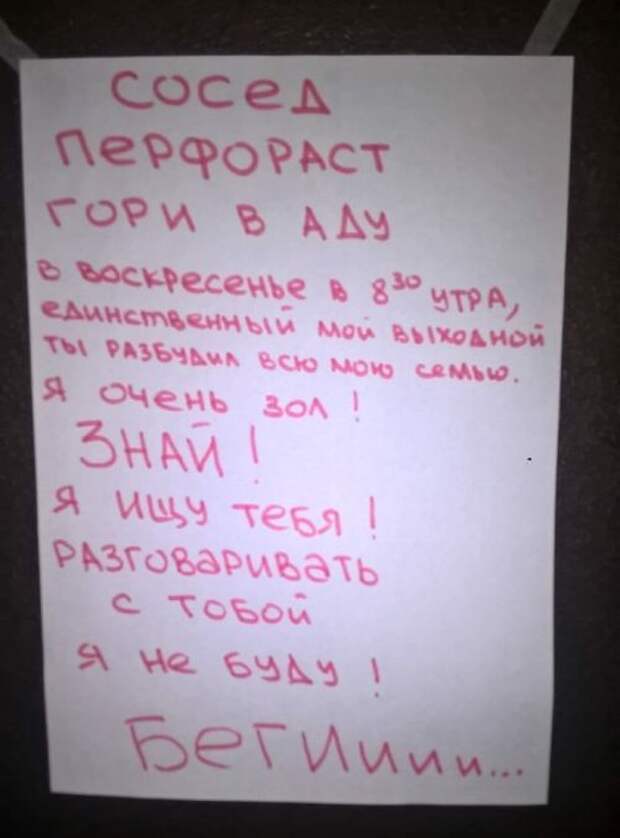 СОСЕД
ПЕРФОРАСТ
ГОРИ В АДУ
В ВОСКРЕСЕНЬЕ В 8³⁰ УТРА,
ЕДИНСТВЕННЫЙ МОЙ ВЫХОДНОЙ
ТЫ РАЗБУДИЛ ВСЮ МОЮ СЕМЬЮ.
Я ОЧЕНЬ ЗОЛ!
ЗНАЙ!
Я ИЩУ ТЕБЯ!
РАЗГОВАРИВАТЬ
С ТОБОЙ
Я НЕ БУДУ!
БЕГИИИИИ...